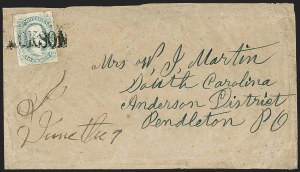 CKSON
Mrs W. J. Martin
South Carolina
Anderson District
Pendleton PO
June the 9